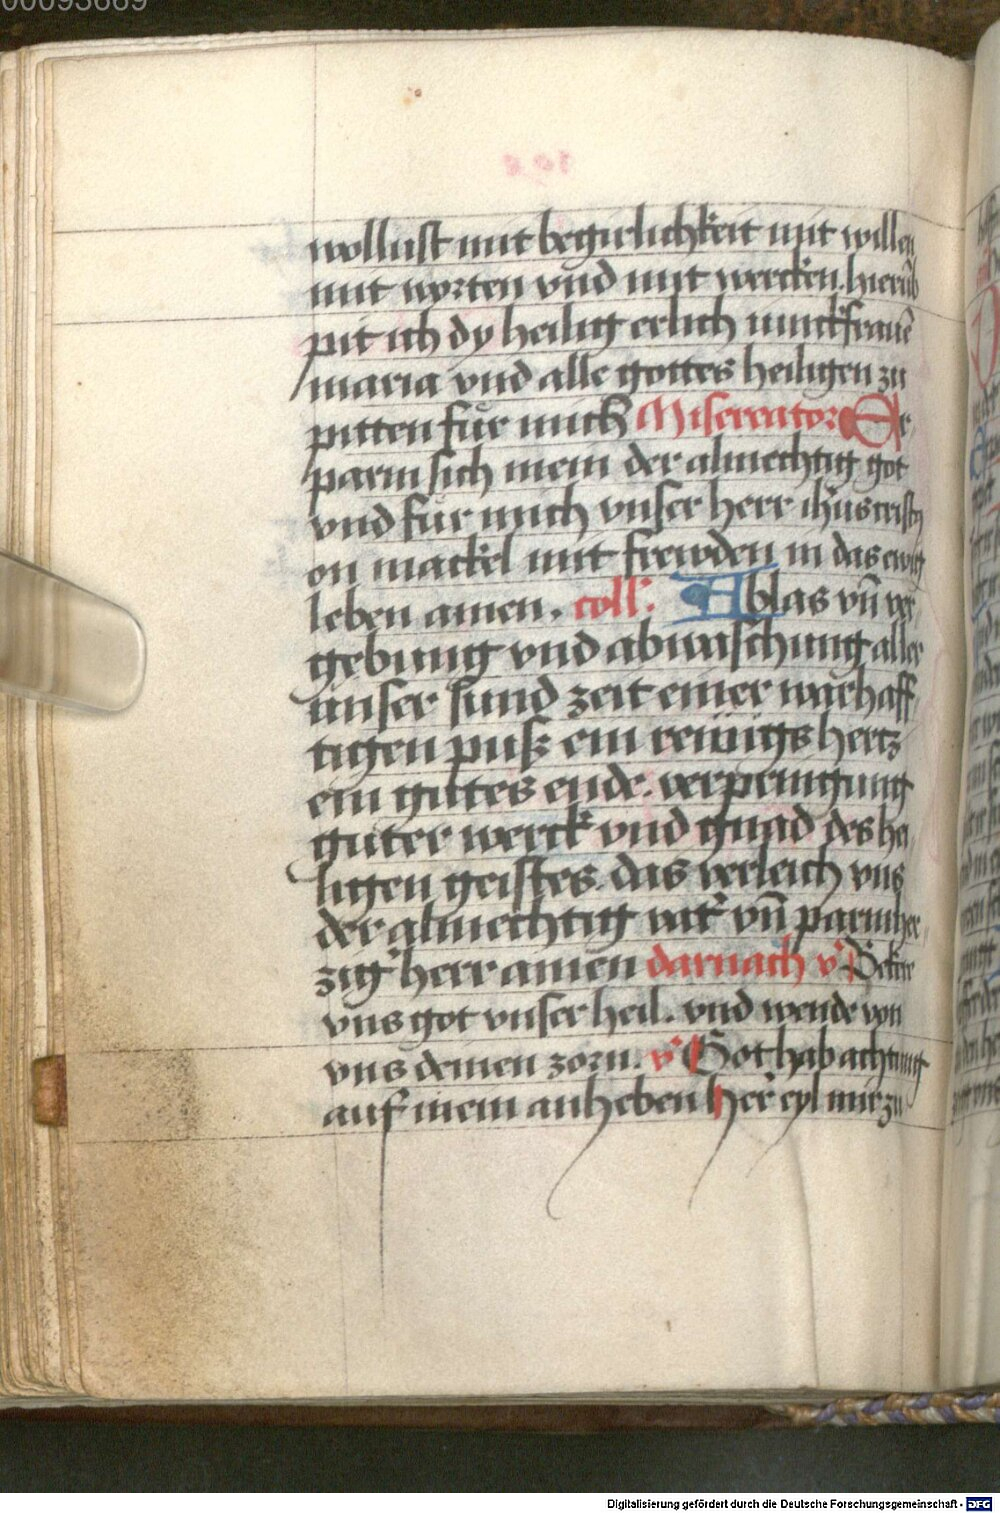 00093669
wollust mit begirlichkeit mit willen
mit worten vnd mit wercken. hierūb
pit ich dy heilig erlich iunckfrauē
maria vnd alle gottes heiligen zu
pitten fur mich Misereator Er,
parm sich mein der almechtig got
vnd fur mich vnser herr ihūs crist9
on mackel mit frewden in das ewig
leben amen. coll'. Ablas vn̄ ver
gebung vnd abwaschung aller
unser sund zeit einer warhaff,
tigen pusz ein reuigs hertz
ein gutes ende. verpeinigung
guter werck vnd gnad des hei,
ligen geistes. das verleich vns
der almechtig vat' vn̄ parmher,
zig' herr amen darnach v' Beker
vns got vnser heil. vnd wende von
vns deinen zorn. v' Got hab achtung
auf mein anheben her eyl mir zu
Digitalisierung gefördert durch die Deutsche Forschungsgemeinschaft - DFG